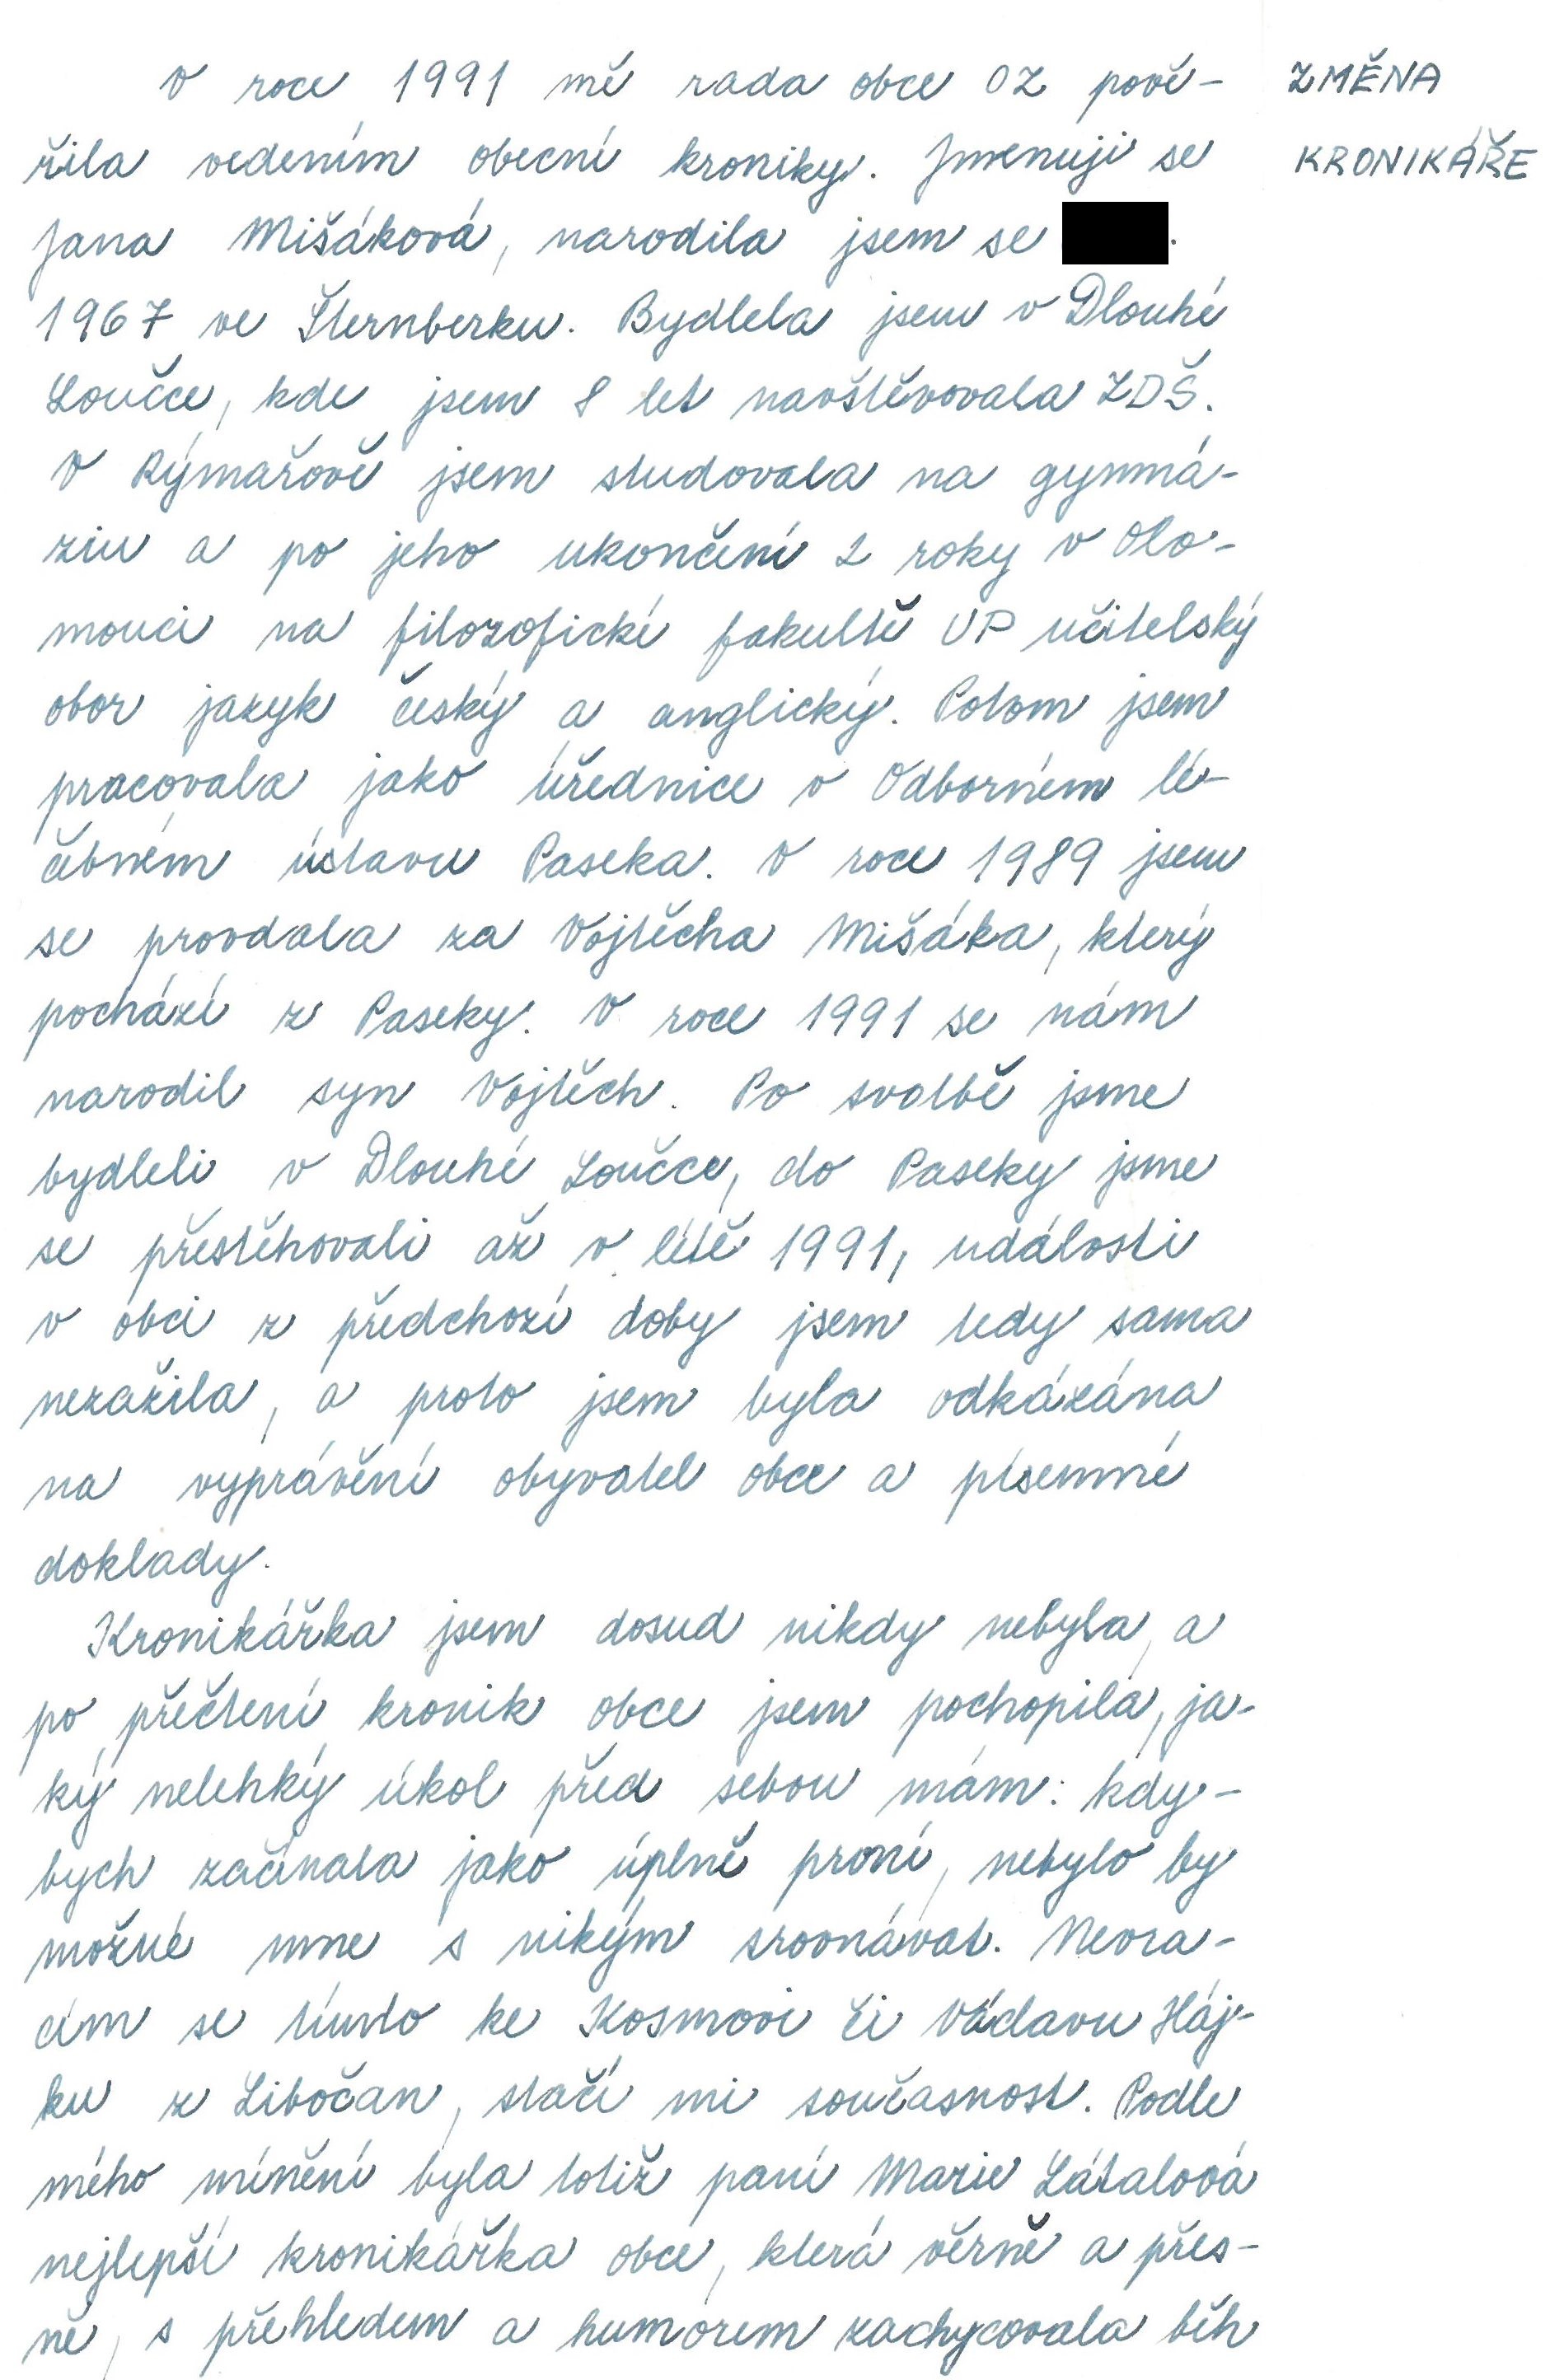 V roce 1991 mě rada obce OZ pově-
řila vedením obecní kroniky. Jmenuji se
Jana Mišáková, narodila jsem se
1967 ve Šternberku. Bydlela jsem v Dlouhé
Loučce, kde jsem 8 let navštěvovala ZDŠ.
V Rýmařově jsem studovala na gymná-
ziu a po jeho ukončení 2 roky v Olo-
mouci na filozofické fakultě UP učitelský
obor jazyk český a anglický. Potom jsem
pracovala jako úřednice v Odborném lé-
čebném ústavu Paseka. V roce 1989 jsem
se provdala za Vojtěcha Mišáka, který
pochází z Paseky. V roce 1991 se nám
narodil syn Vojtěch. Po svatbě jsme
bydleli v Dlouhé Loučce, do Paseky jsme
se přestěhovali až v létě 1991, události
v obci z předchozí doby jsem tedy sama
nezažila, a proto jsem byla odkázána
na vyprávění obyvatel obce a písemné
doklady.
Kronikářka jsem dosud nikdy nebyla, a
po přečtení kronik obce jsem pochopila, ja-
ký nelehký úkol před sebou mám: kdy-
bych začínala jako úplně první, nebylo by
možné mne s nikým srovnávat. Nevra-
cím se tímto ke Kosmovi či Václavu Háj-
ku z Libočan, stačí mi současnost. Podle
mého mínění byla totiž paní Marie Látalová
nejlepší kronikářka obce, která věrně a přes-
ně, s přehledem a humorem zachycovala běh
ZMĚNA
KRONIKÁŘE